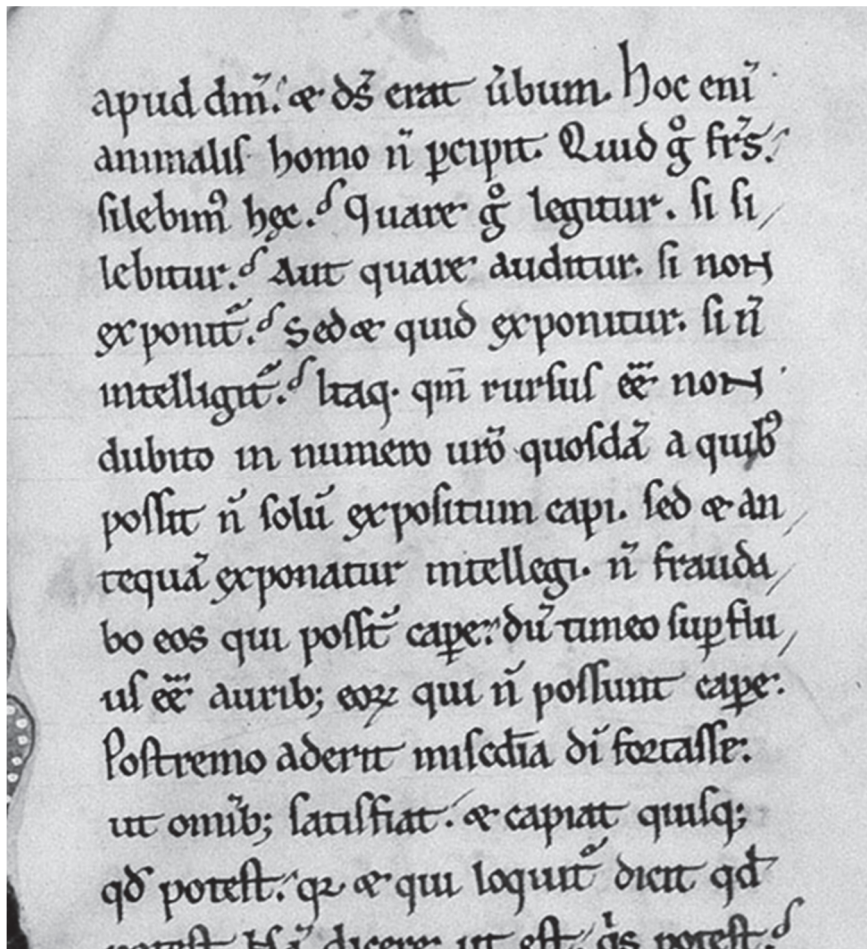 apud dm̄. & ds̄ erat ūbum. Hoc enī
animalis homo n̄ p̱cipit. Quid gͦ frs̄.
silebimꝰ hęc. Quare gͦ legitur. si si/
lebitur. Aut quare auditur. si non
exponit᷑. Sed & quid exponitur. si n̄
intelligit᷑. Itaq. qm̄ rursus ēē non
dubito in numero urō quosdā a quibꝰ
possit n̄ solū expositum capi. sed & an/
tequā exponatur intellegi. n̄ frauda/
bo eos qui possīt cape. dū timeo suꝑflu/
us ēē aurib; eoꝝ qui n̄ possunt caꝑe.
Postremo aderit misc̄dia dī fortasse.
ut omīb; satisfiat. & capiat quisq;
qđ potest. qꝛ & qui loquit᷑ dicit qđ
potest. Nā dicere ut est. qͥs potest